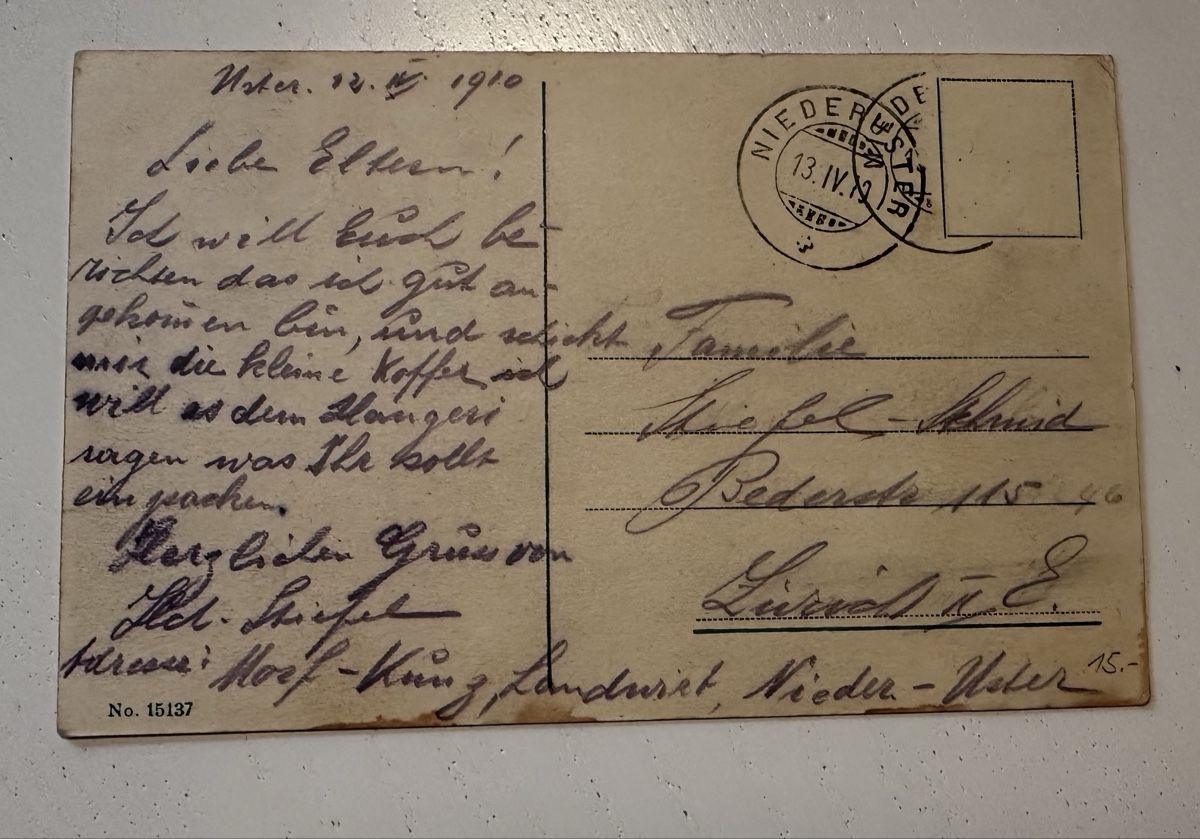 Uster. 12. IV. 1910
Liebe Eltern!
Ich will Euch be-
richten das ich gut an-
gekommen bin, und schickt
mir die kleine Koffer ich
will es dem
sagen was Ihr sollt
einpacken.
Herzlichen Gruss von
Hch. Stiefel
Adresse: Hosf-Kunz, Landwirt, Nieder-Uster
No. 15137
NIEDERUSTER
13.IV.10
Familie
Stiefel-Schmid
Bederstr 115 46
Zürich II. E.
15.-